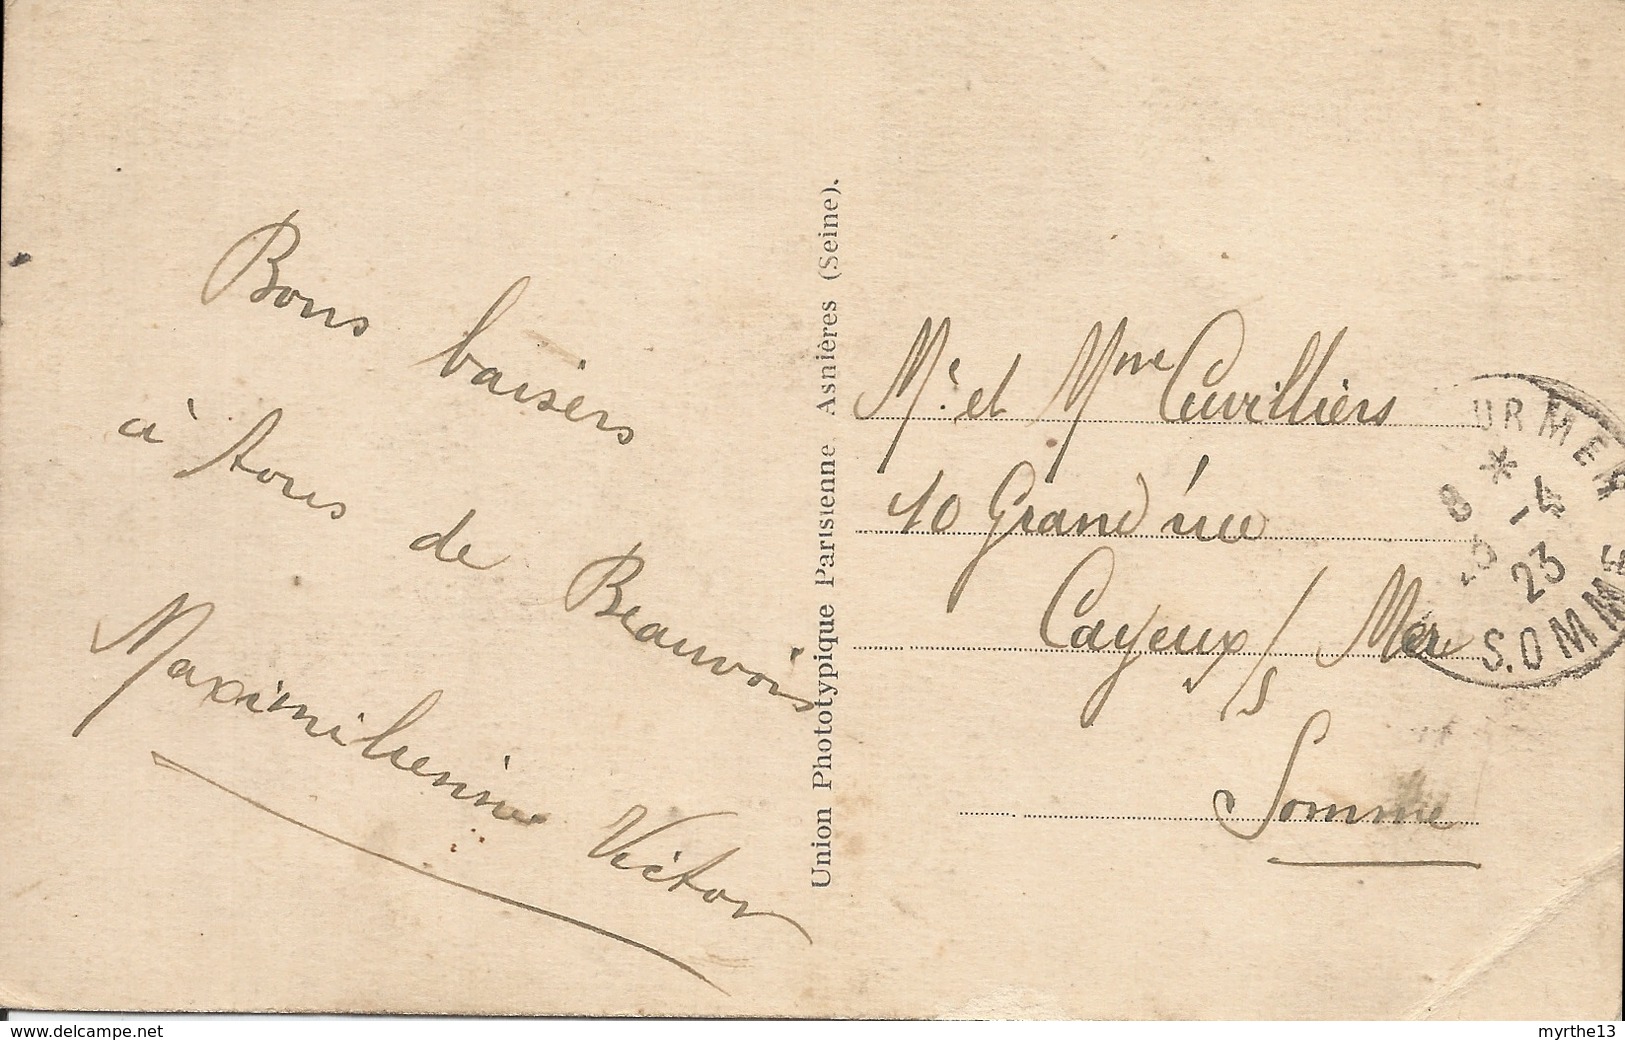 Bons baisers
à tous de Beauvois
Maximilienne Victor
Union Phototypique Parisienne Asnières (Seine).
Mr et Mme Cuvilliers
10 Grand'rue
Cayeux s/ Mer
Somme
URMER
*
8
-4
23
SOMME
www.delcampe.net
myrthe13